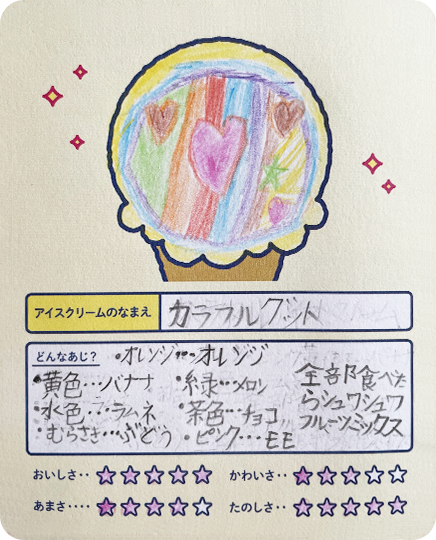 アイスクリームのなまえ カラフルグット
どんなあじ? ・オレンジ…オレンジ
・黄色…バナナ ・緑…メロン
・水色…ラムネ ・茶色…チョコ
・むらさき…ぶどう ・ピンク…モモ
全部食べた
らシュワシュワ
フルーツミックス
おいしさ‥ かわいさ‥
あまさ‥‥ たのしさ‥